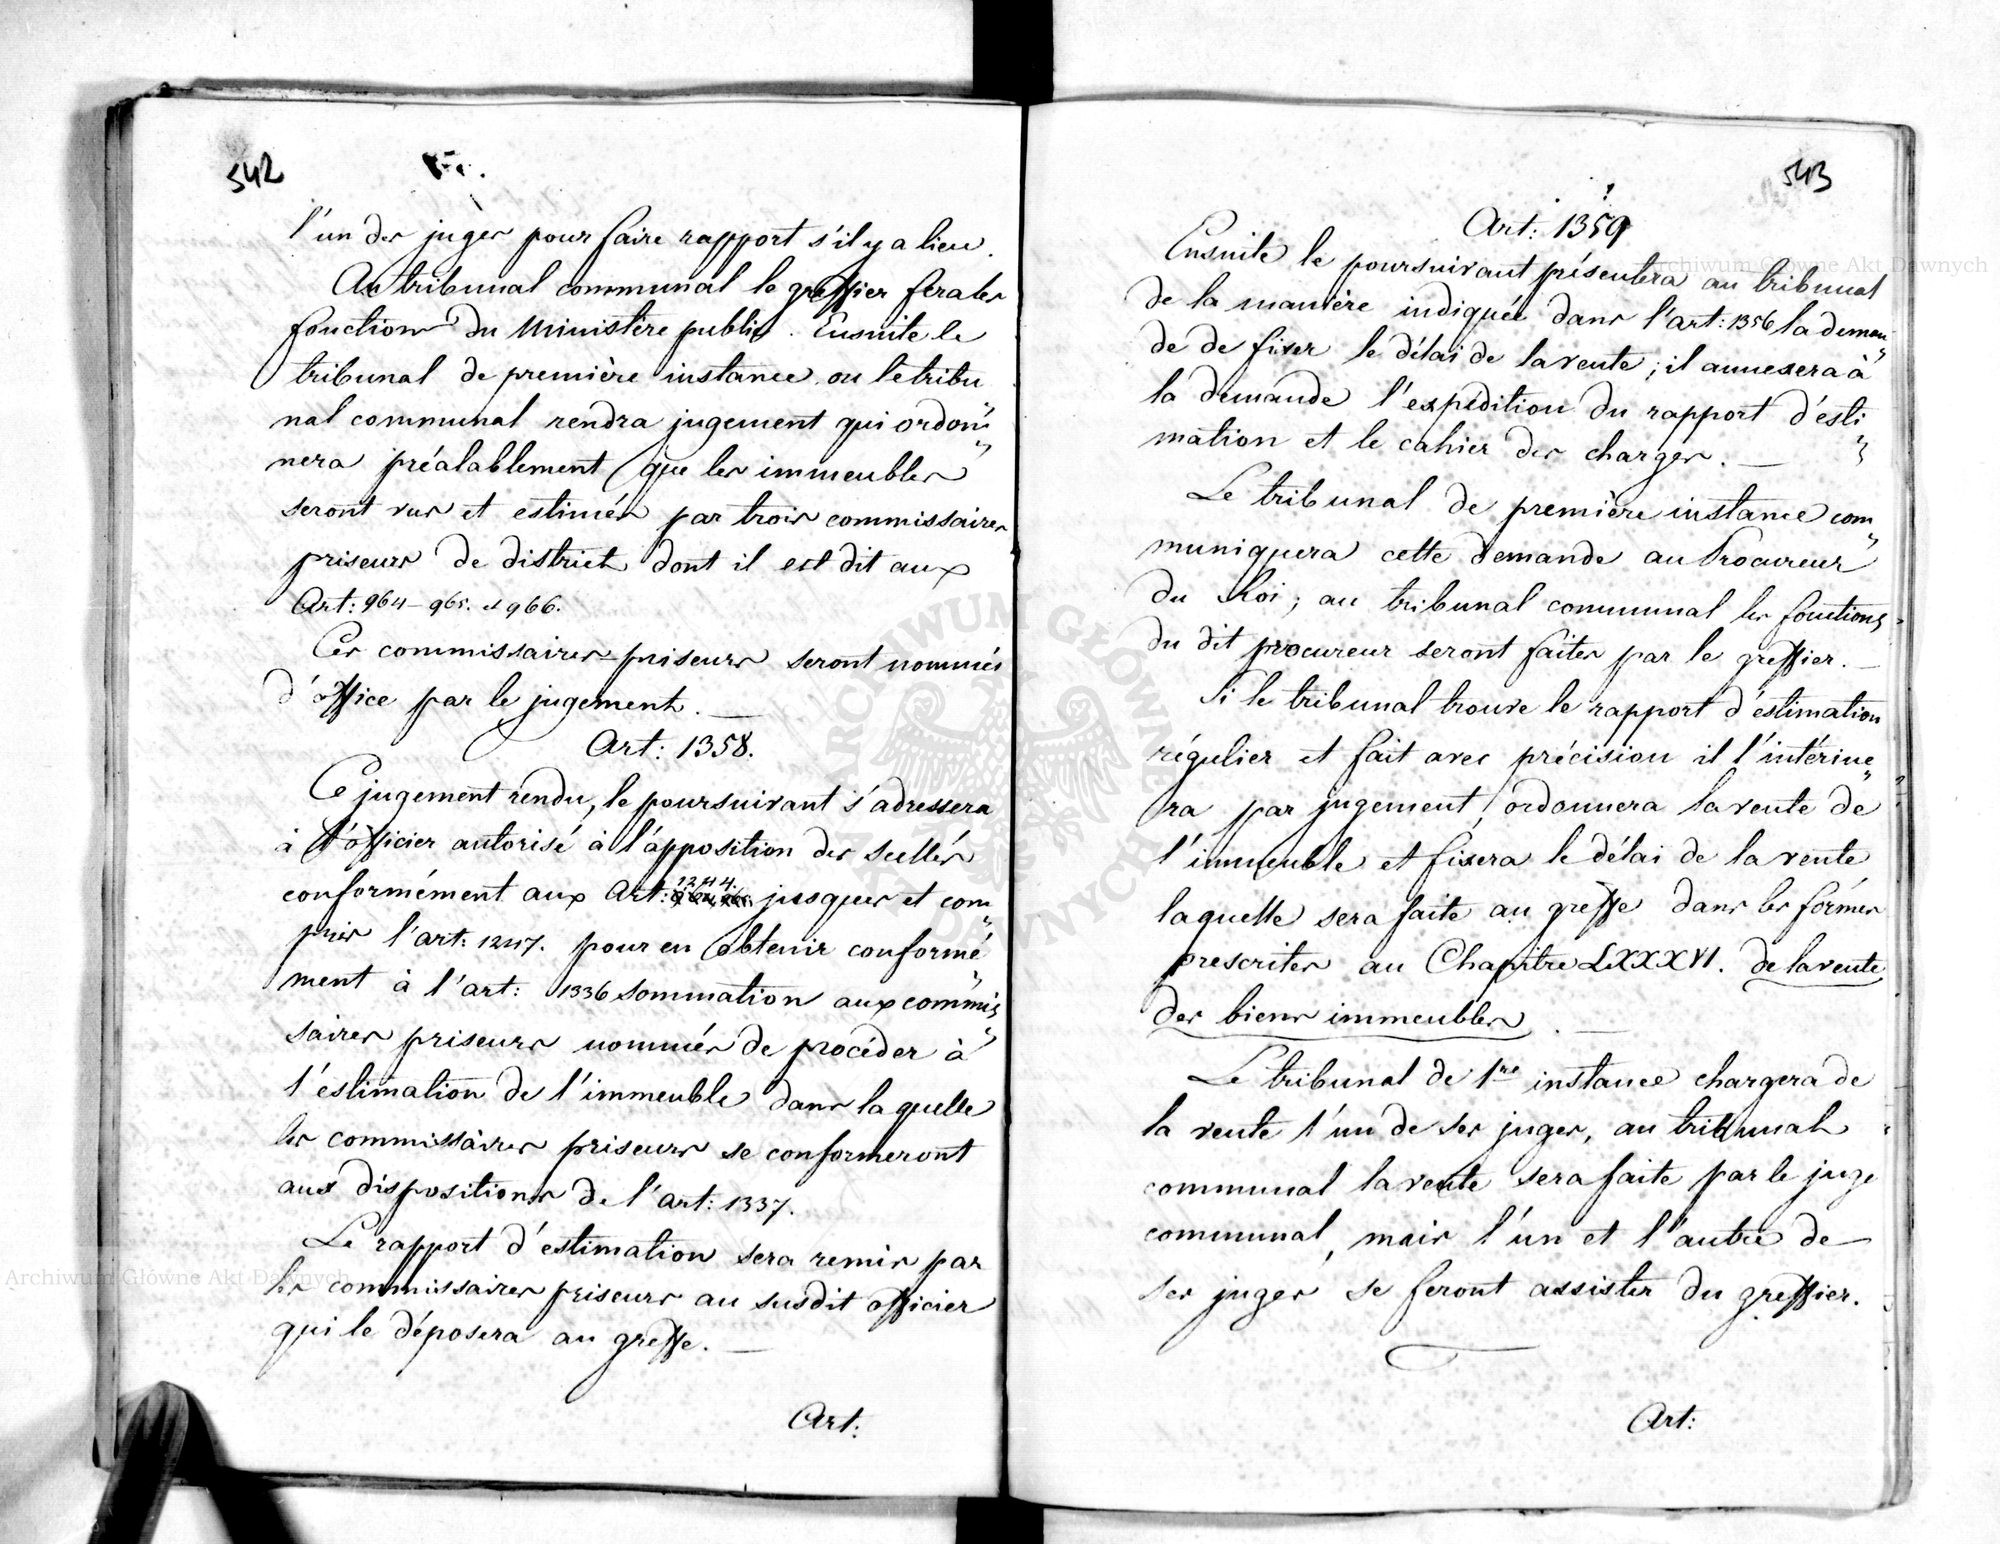 542
l'un des juges pour faire rapport s'il y a lieu.
Au tribunal communal le greffier fera les
fonctions du Ministère public. Ensuite le
tribunal de première instance ou le tribu
nal communal rendra jugement qui ordon„
nera préalablement que les immeubles
seront vus et estimés par trois commissaires
priseurs de district dont il est dit aux
Art: 964 – 965. et 966.
Ces commissaires-priseurs seront nommés
d'office par le jugement. —
Art: 1358.
Ce jugement rendu, le poursuivant s'adressera
à l'officier autorisé à l'apposition des scellés
conformément aux Art: 1244. jusques et com„
pris l'art: 1247. pour en obtenir conformé„
ment à l'art: 1336 sommation aux commis„
saires priseurs nommés de procéder à
l'estimation de l'immeuble dans laquelle
les commissaires priseurs se conformeront
aux dispositions de l'art: 1337.
Le rapport d'estimation sera remis par
les commissaires priseurs au susdit officier
qui le déposera au greffe. —
Art:
543
Art: 1359
Ensuite le poursuivant présentera au tribunal
de la manière indiquée dans l'art: 1356 la deman„
de de fixer le délai de la vente; il annexera à
la demande l'expédition du rapport d'esti„
mation et le cahier des charges. —
Le tribunal de première instance com„
muniquera cette demande au Procureur
du Roi; au tribunal communal les fonctions
du dit procureur seront faites par le greffier. —
Si le tribunal trouve le rapport d'estimation
régulier et fait avec précision il l'intérine„
ra par jugement, ordonnera la vente de
l'immeuble et fixera le délai de la vente
laquelle sera faite au greffe dans les formes
prescrites au Chapitre LXXXVI. de la vente
des biens immeubles. —
Le tribunal de 1re instance chargera de
la vente l'un de ses juges, au tribunal
communal la vente sera faite par le juge
communal, mais l'un et l'autre de
ses juges se feront assister du greffier.
Art:
Archiwum Główne Akt Dawnych
Archiwum Główne Akt Dawnych
ARCHIWUM GŁÓWNE AKT DAWNYCH